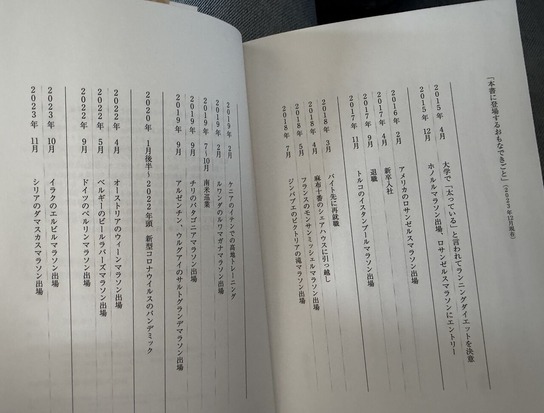 「本書に登場するおもなできごと」(2023年12月現在)
2015年 4月 大学で「太っている」と言われてランニングダイエットを決意
2015年 12月 ホノルルマラソン出場、ロサンゼルスマラソンにエントリー
2016年 2月 アメリカのロサンゼルスマラソン出場
2017年 4月 新卒入社
2017年 9月 退職
2017年 11月 トルコのイスタンブールマラソン出場
2018年 3月 バイト先に再就職
2018年 4月 麻布十番のシェアハウスに引っ越し
2018年 5月 フランスのモンサンミッシェルマラソン出場
2018年 7月 ジンバブエのビクトリアの滝マラソン出場
2019年 2月 ケニアのイテンでの高地トレーニング
2019年 2月 ルワンダのルワマガナマラソン出場
2019年 7〜10月 南米巡業
2019年 9月 チリのパタゴニアマラソン出場
2019年 9月 アルゼンチン、ウルグアイのサルトグランデマラソン出場
2020年 1月後半〜2022年頭 新型コロナウイルスのパンデミック
2022年 4月 オーストリアのウィーンマラソン出場
2022年 5月 ベルギーのビールラバーズマラソン出場
2022年 9月 ドイツのベルリンマラソン出場
2023年 10月 イラクのエルビルマラソン出場
2023年 11月 シリアのダマスカスマラソン出場